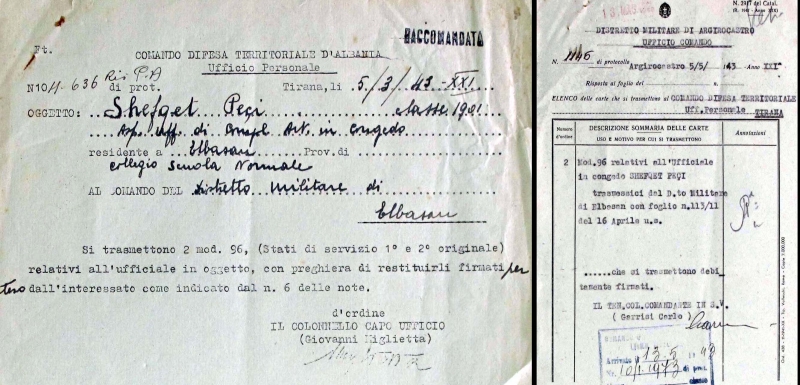 RACCOMANDATA
Ft.
COMANDO DIFESA TERRITORIALE D'ALBANIA
Ufficio Personale
N10/1-636 Ris P.A di prot. Tirana, li 5/3/43-XXI
OGGETTO: Shefget Peçi classe 1901
Asp. uff. di compl. Art. in congedo
residente a Elbasan Prov. di
collegio Scuola Normale
AL COMANDO DEL Distretto Militare di
Elbasan
Si trasmettono 2 mod. 96, (Stati di servizio 1° e 2° originale)
relativi all'ufficiale in oggetto, con preghiera di restituirli firmati per
tero dall'interessato come indicato dal n. 6 delle note.
d'ordine
IL COLONNELLO CAPO UFFICIO
(Giovanni Miglietta)
DISTRETTO MILITARE DI ARGIROCASTRO
UFFICIO COMANDO
N. 1146
di protocollo Argirocastro 5/5/ 143 - Anno XXI°
Risposta al foglio del n.
ELENCO delle carte che si trasmettono al COMANDO DIFESA TERRITORIALE
Uff.Personale TIRANA
Numero d'ordine
DESCRIZIONE SOMMARIA DELLE CARTE
USO E MOTIVO PER CUI SI TRASMETTONO
Annotazioni
2 Mod.96 relativi all'Ufficiale
in congedo SHEFQET PEÇI
trasmessici dal D.to Militare
di Elbesan con foglio n.113/11
del 16 Aprile u.s.
......che si trasmettono debi
tamente firmati.
IL TEN.COL.COMANDANTE IN S.V.
( Gerrisi Carlo )
Arrivato il 13.5 1943
Nr. 10/1.1973 di prot.